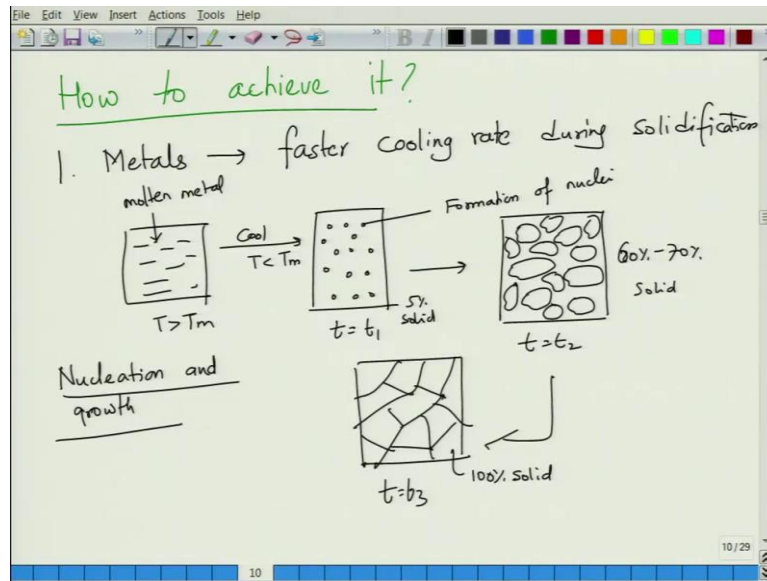 File Edit View Insert Actions Tools Help
How to achieve it?
1. Metals → faster cooling rate during solidification
molten metal
Cool
T < Tm
T > Tm
Formation of nuclei
5% solid
t = t1
60% - 70%
Solid
t = t2
Nucleation and
growth
100% solid
t = t3
10/29
10